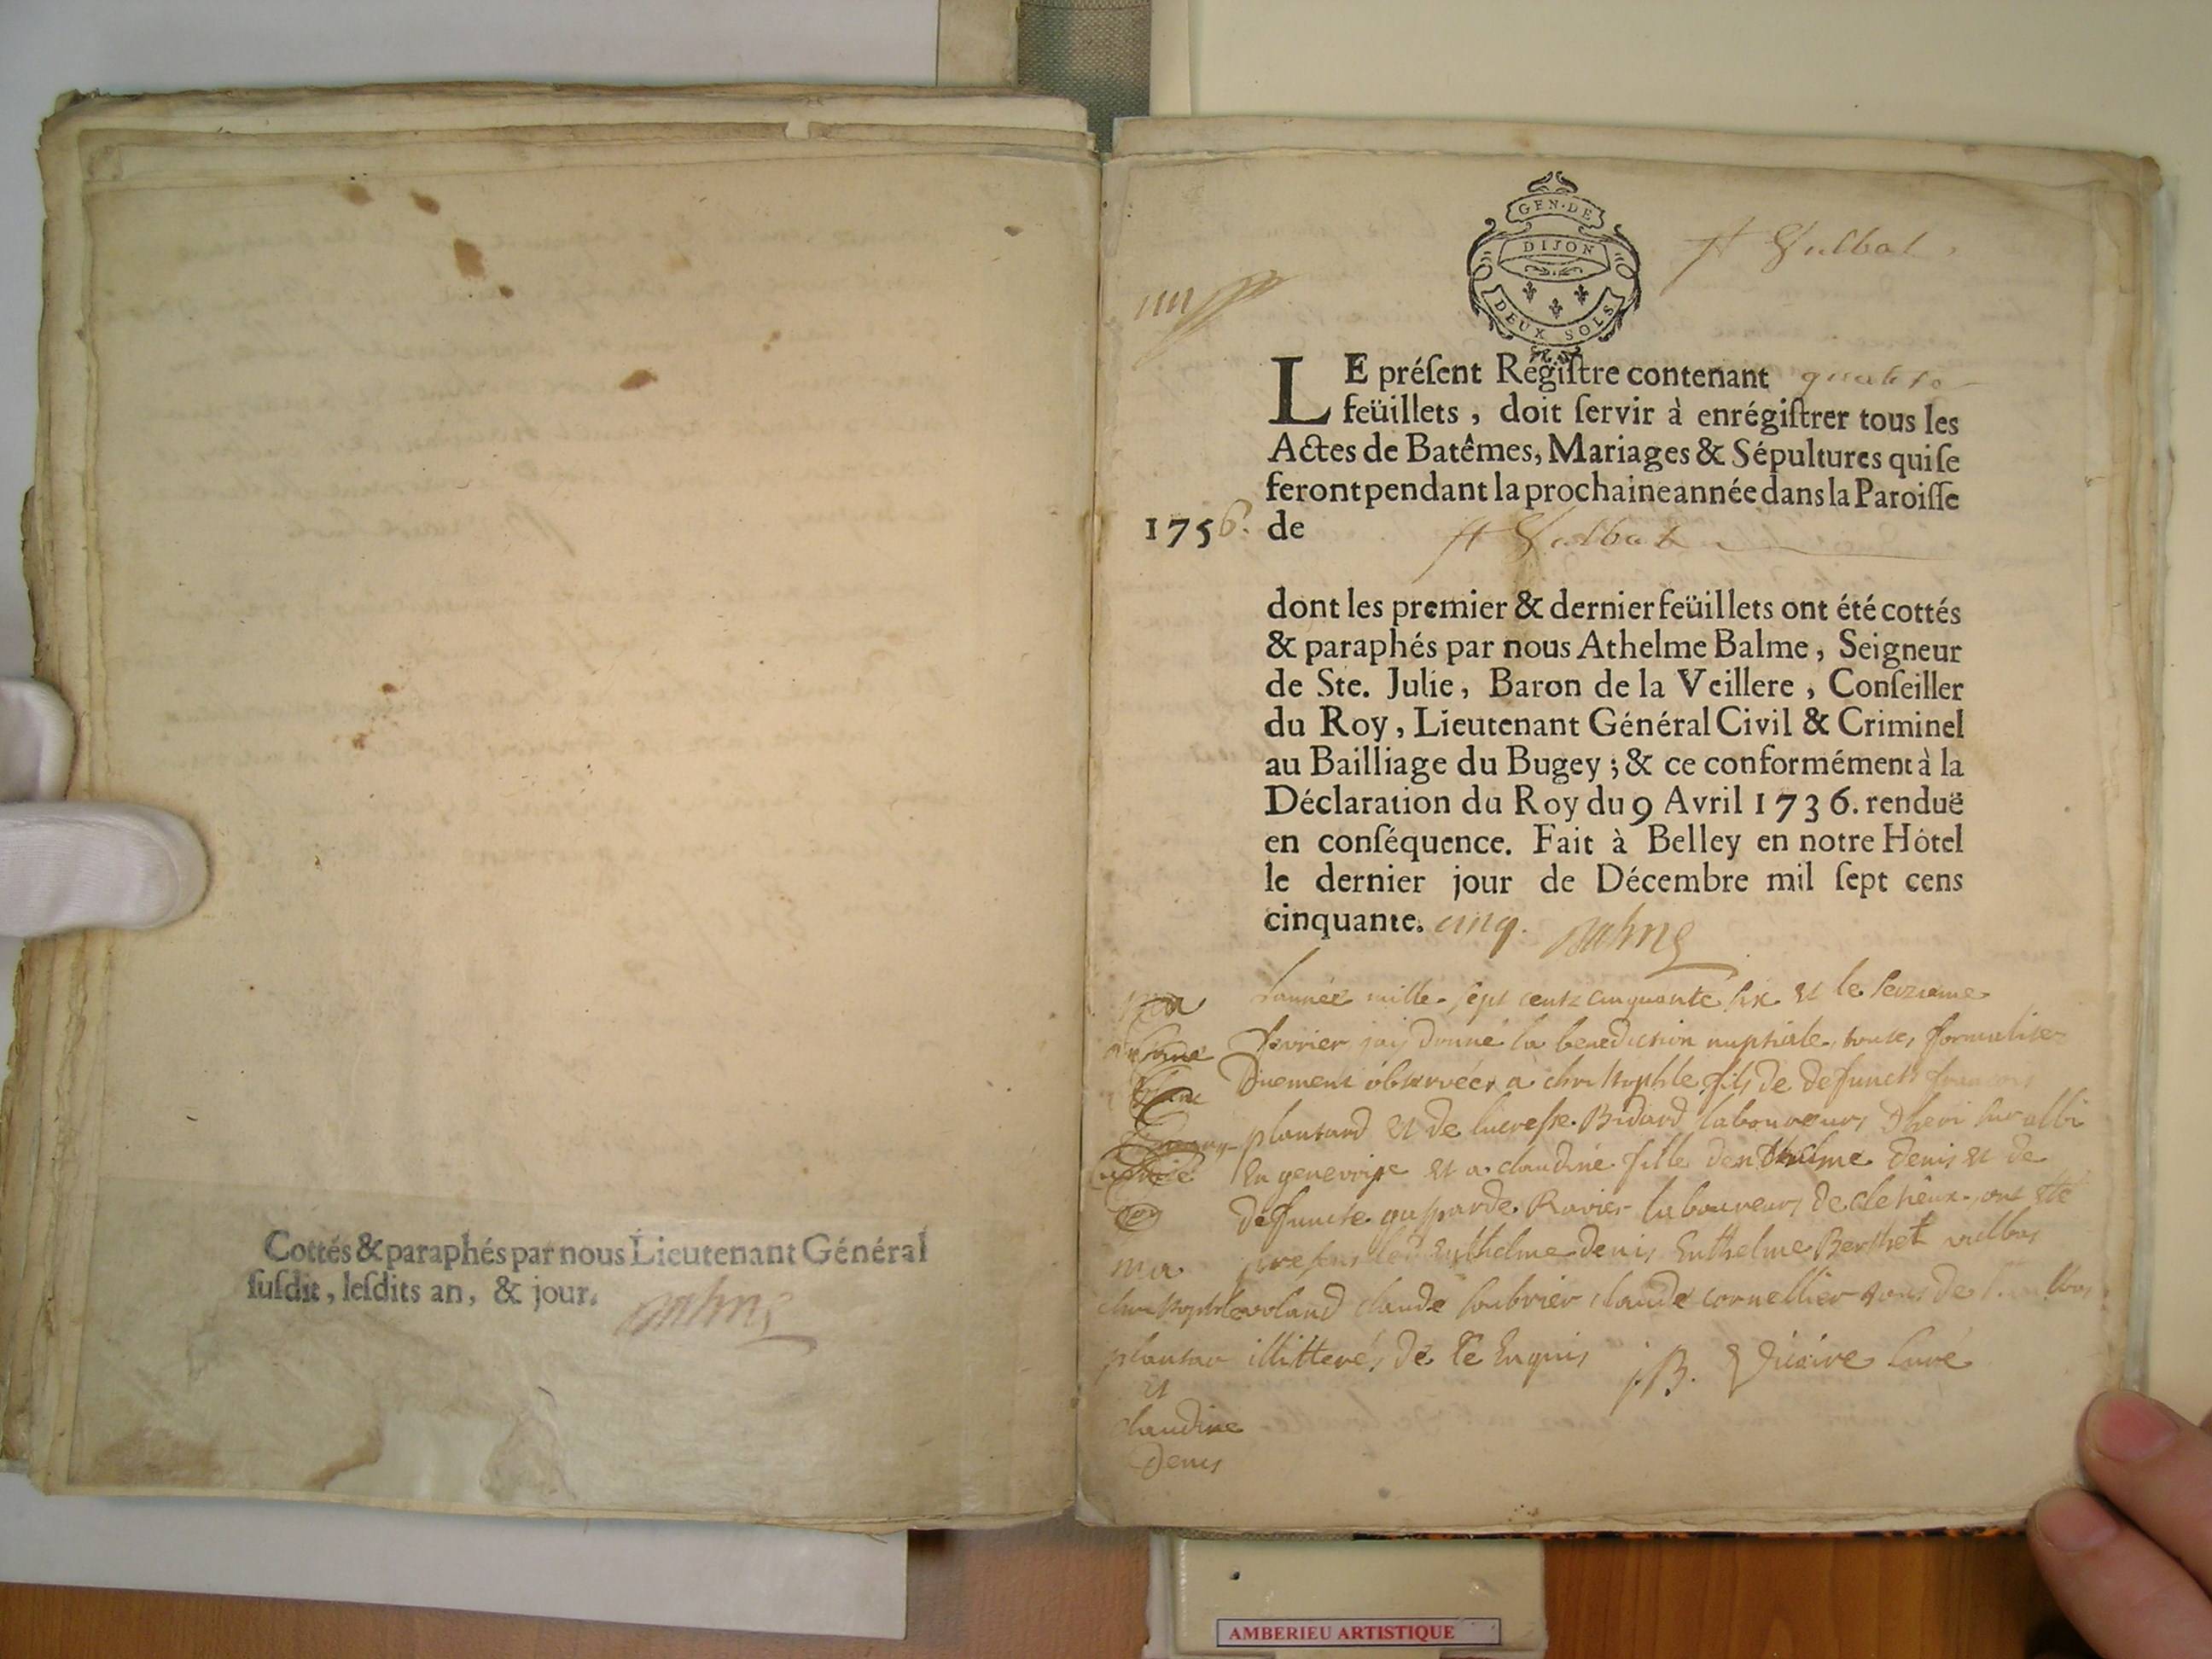 Cottés & paraphés par nous Lieutenant Général
ſuſdit, leſdits an, & jour.
GEN·DE
DIJON
DEUX SOLS
St Vulbat
LE préſent Régiſtre contenant quatre
feüillets, doit ſervir à enrégiſtrer tous les
Actes de Batêmes, Mariages & Sépultures qui ſe
feront pendant la prochaine année dans la Paroiſſe
1756. de St Vulbat
dont les premier & dernier feüillets ont été cottés
& paraphés par nous Athelme Balme, Seigneur
de Ste. Julie, Baron de la Veillere, Conſeiller
du Roy, Lieutenant Général Civil & Criminel
au Bailliage du Bugey; & ce conformément à la
Déclaration du Roy du 9 Avril 1736. renduë
en conſéquence. Fait à Belley en notre Hôtel
le dernier jour de Décembre mil ſept cens
cinquante. cinq. Balme
Lannée mille sept cents cinquante six et le seizieme
fevrier jay donné la benediction nuptiale, toutes formalites
Duement observées a christophle fils de defuncts francois
plantard et de lucresse Bidard laboureurs
En genevoise et a claudine fille Denthelme Denis et de
deffuncte gasparde Ravier laboureurs de ont eté
presens led Enthelme Denis, Enthelme Berthet
claude claude cornellier tous de
illitterés de ce Enquis j.B. Vicaire Curé
ma
christophle
plantar
et
claudine
Denis
AMBERIEU ARTISTIQUE